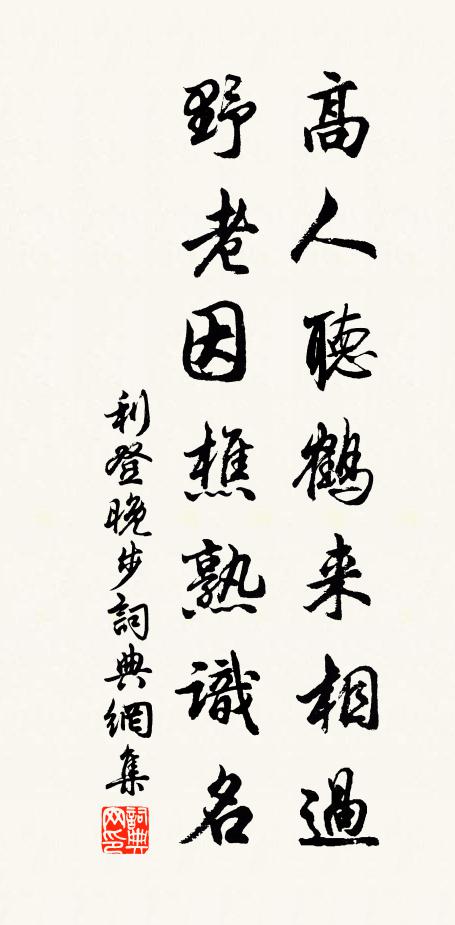 高人聽鶴来相過
野老因樵熟識名
利登晚步詞典網集
詞典網印